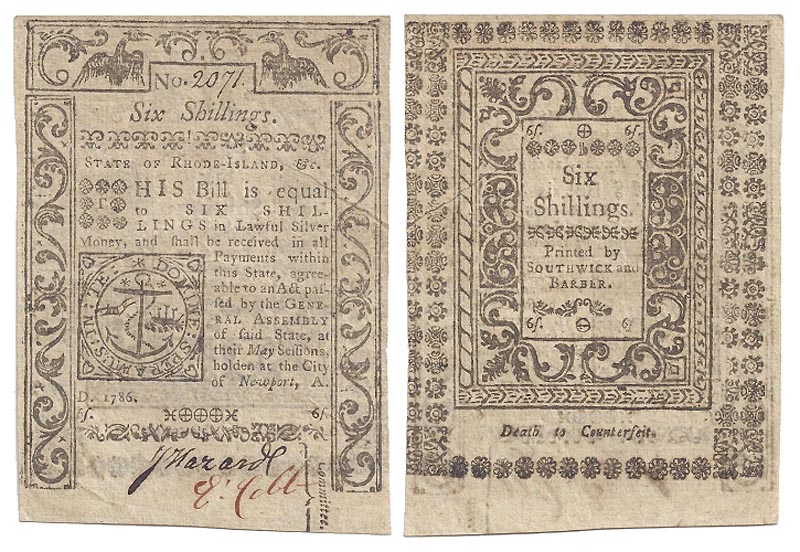 No. 2071.
Six Shillings.
STATE OF RHODE-ISLAND, &c.
THIS Bill is equal
to SIX SHIL-
LINGS in Lawful Silver
Money, and shall be received in all
Payments within
this State, agree-
able to an Act paſ-
ſed by the GENE-
RAL ASSEMBLY
of ſaid State, at
their May Seſſions,
holden at the City
of Newport, A.
D. 1786.
IN : TE : DOMINE : SPERAMUS :
6ſ. 6ſ
J Hazard
Committee.
6ſ. 6ſ.
Six
Shillings.
Printed by
SOUTHWICK and
BARBER.
6ſ. 6ſ
Death to Counterfeit.